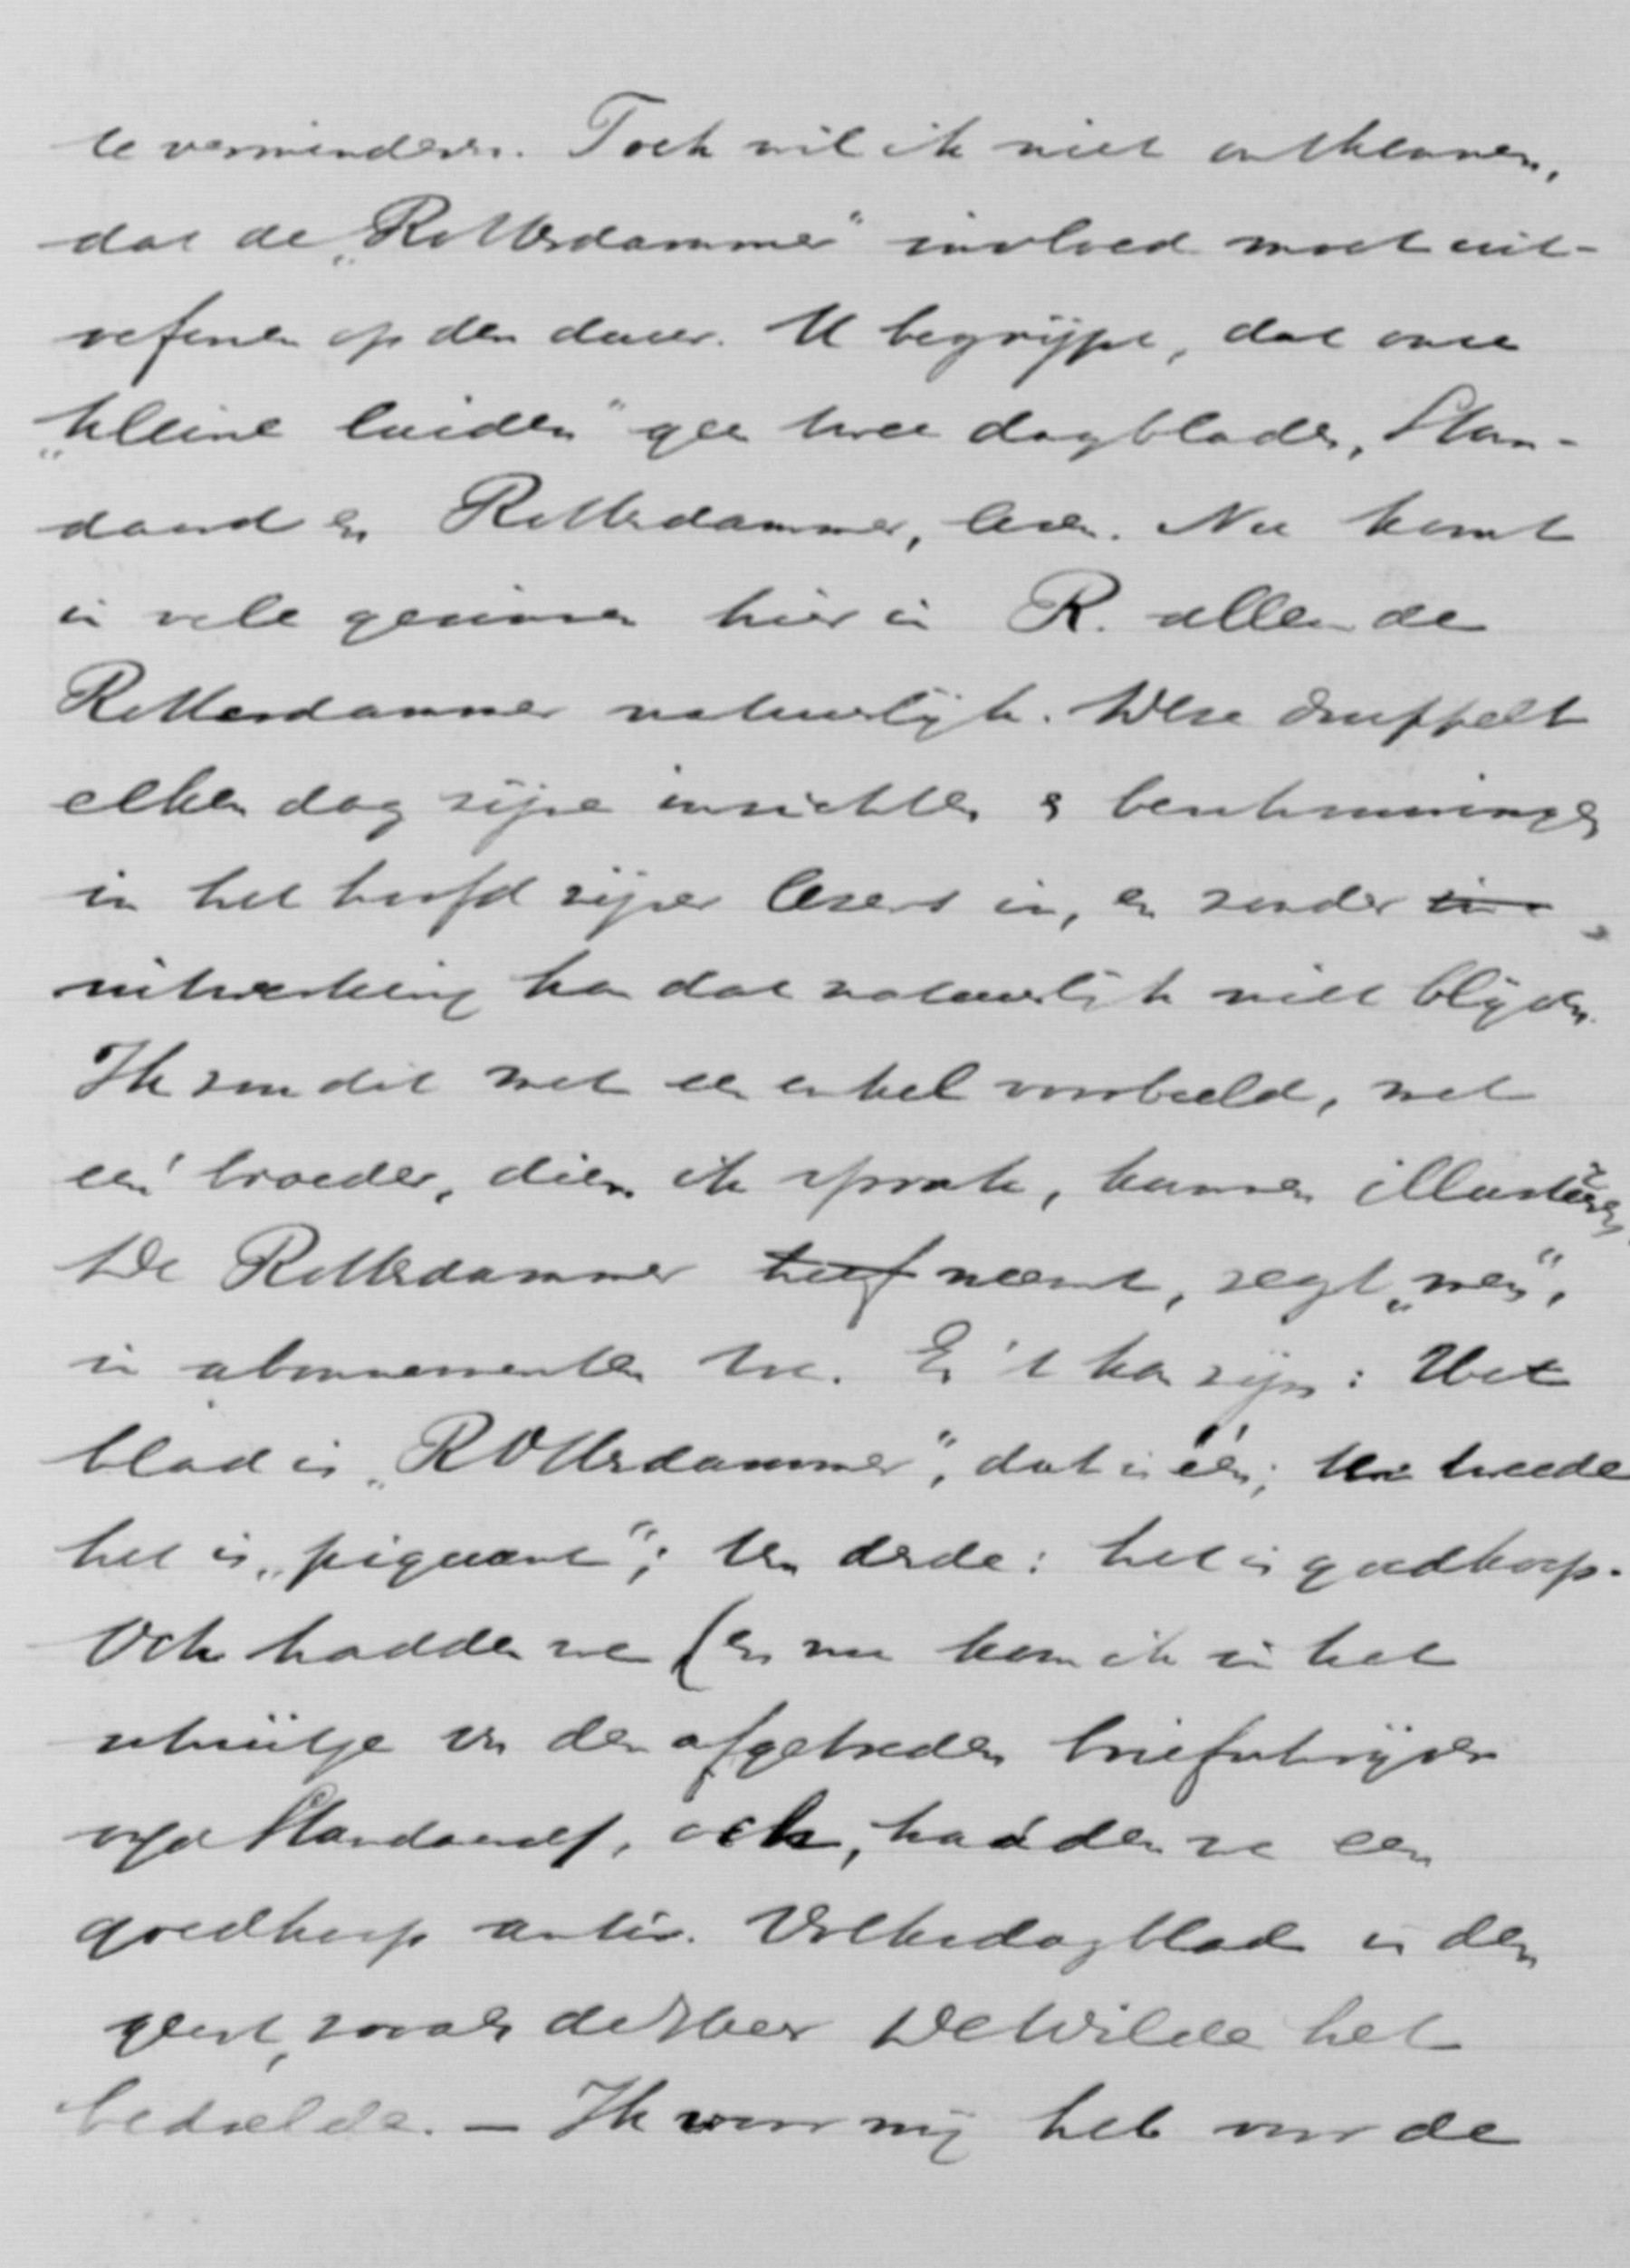 te verminderen. Toch wil ik niet ontkennen,
dat de „Rotterdammer" invloed moet uit-
oefenen op den duur. U begrijpt, dat onze
„kleine luiden" gee twee dagbladen, Stan-
daard en Rotterdammer, lezen. Nu komt
in vele gezinnen hier in R. alleen de
Rotterdammer natuurlijk. Deze druppelt
elken dag zijne inzichten & beschouwingen
in het hoofd zijner lezers in, en zonder
uitwerking kan dat natuurlijk niet blijven.
Ik zou dit met een enkel voorbeeld, met
een' broeder, dien ik sprak, kunnen illustreeren
De Rotterdammer heef neemt, zegt „men",
in abonnementen toe. En 't kan zijn: Het
blad is „Rotterdammer", dat is één; ten tweede
het is „piquant"; ten derde: het is goedkoop.
Och hadden we (en nu kom ik in het
schuitje van den afgetreden briefschrijver
v/d Standaard), och, hadden we een
goedkoop antir. Volksdagblad in den
geest, zooals de Heer De Wilde het
bedoelde. — Ik voor mij heb voor de